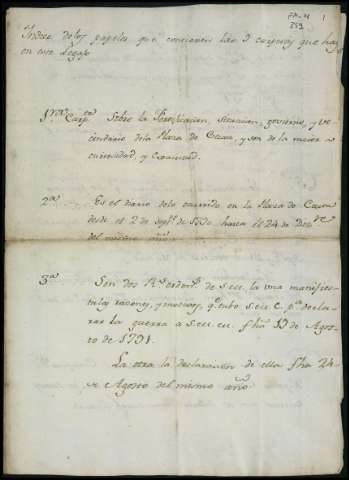 FA-M 1
259
Yndice de los papeles que contienen las 3 carpetas que hay
en este Legajo
1ra Carpta Sobre la Fortificacion, situacion, govierno, y ve-
cindario de la Plaza de Ceuta, y son de la maior
curiosidad, y exactitud.
2a Es el diario de lo ocurrido en la Plaza de Ceuta
desde el 2 de sepre de 1790 hasta el 24 de Dizre
del mismo año
3a Son dos Rs ordens de S.M. la una manifies-
ta las razones, y motivos, qe tubo S.M.C. pa decla-
rar la guerra a S.M. fha 19 de Agos-
to de 1791.
La otra la declaracion de ella fha 24
de Agosto del mismo año